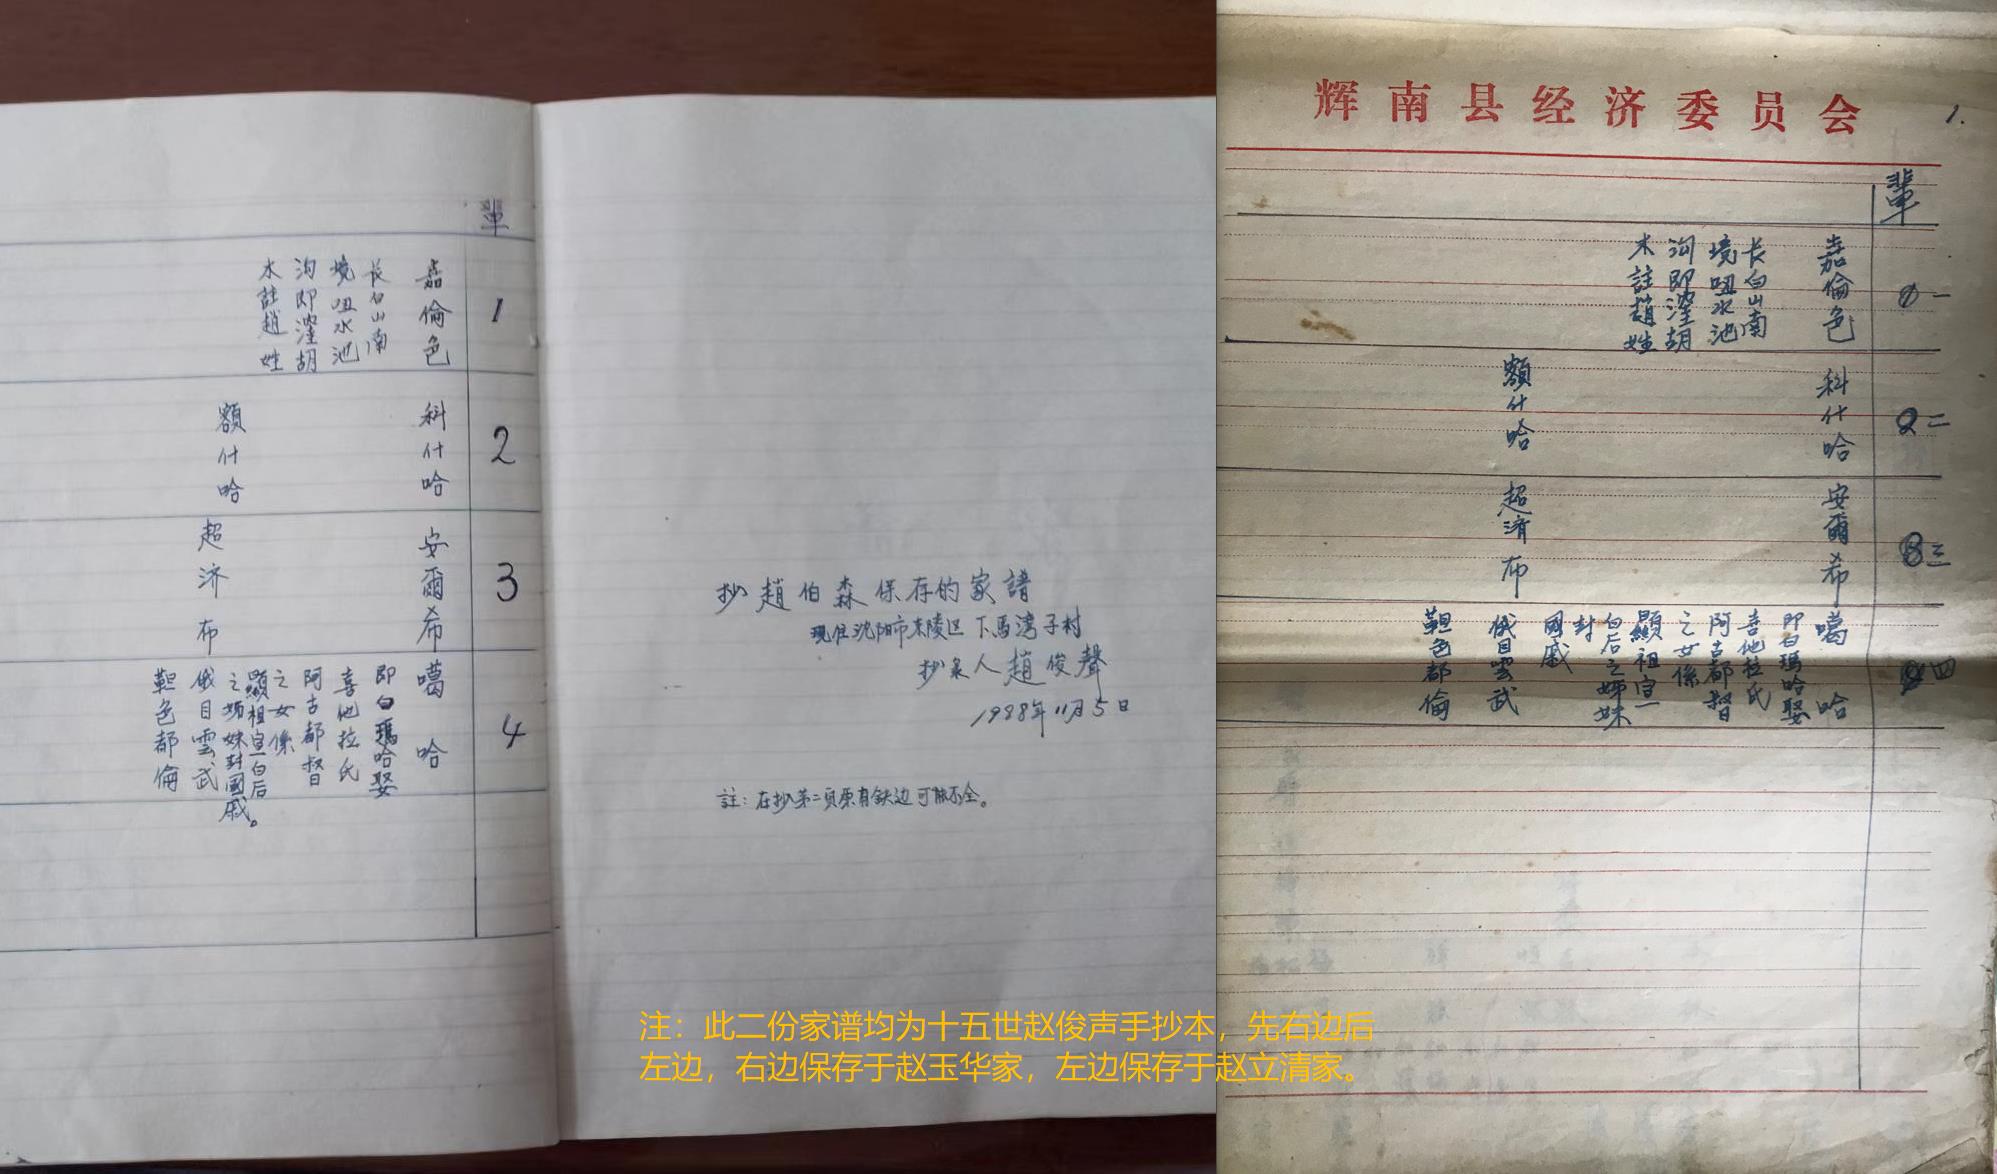 輩
1
嘉倫色
长白山南
境呾水池
沟即漥胡
木註趙姓
2
科什哈
額什哈
3
安爾希
超济布
4
噶哈
即白瑪哈娶
喜他拉氏
阿古都督
之女係
顯祖宣一白后
之姊妹封國戚。
俄目雲武
靼色都倫
抄趙伯森保存的家譜
现住沈阳市东陵区下馬湾子村
抄录人趙俊聲
1988年11月5日
註：在抄第二页原有缺边可能不全。
辉南县经济委员会
1.
輩
一
嘉倫色
长白山南
境呾水池
沟即漥胡
木註趙姓
二
科什哈
額什哈
三
安爾希
超濟布
四
噶哈
即白瑪哈娶
喜他拉氏
阿古都督
之女係
顯祖宣一
白后之姊妹
封
國戚
俄目雲武
靼色都倫
注：此二份家谱均为十五世赵俊声手抄本，先右边后
左边，右边保存于赵玉华家，左边保存于赵立清家。